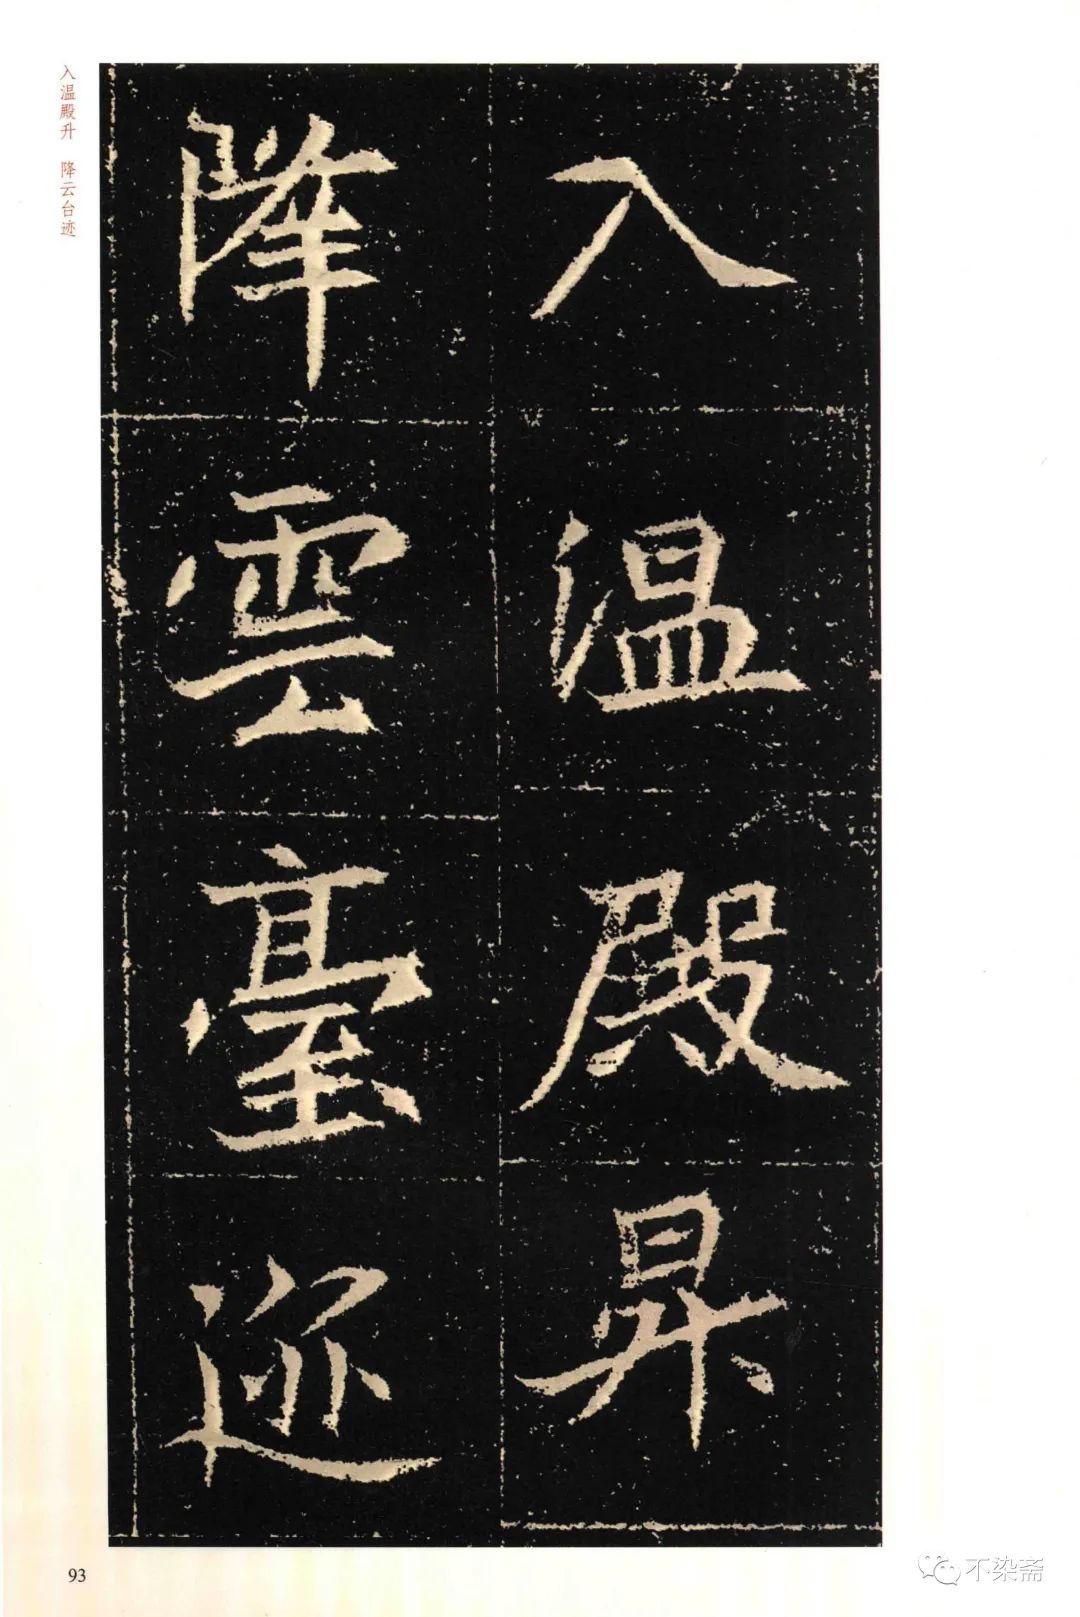 入温殿昇
降雲臺迹
入温殿升 降云台迹
93
不染斋